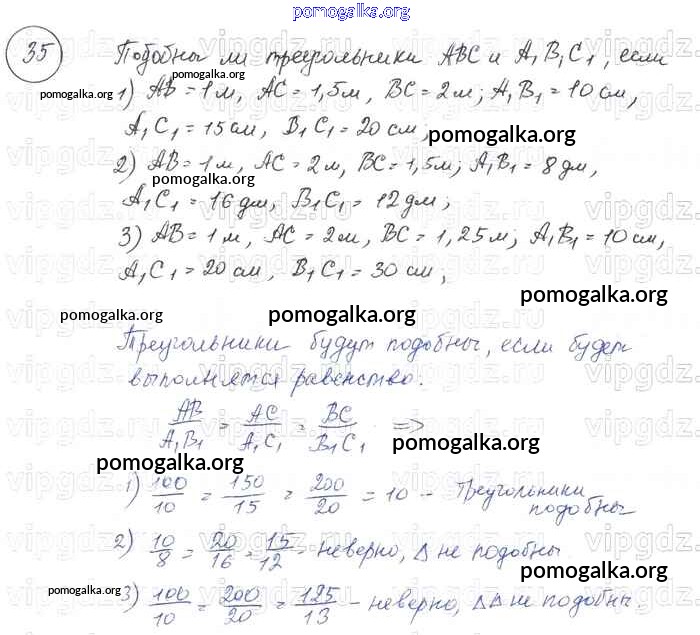 pomogalka.org
35
Подобны ли треугольники ABC и A₁B₁C₁, если
pomogalka.org
1) AB = 1 м, AC = 1,5 м, BC = 2 м; A₁B₁ = 10 см,
pomogalka.org
A₁C₁ = 15 см, B₁C₁ = 20 см;
pomogalka.org
2) AB = 1 м, AC = 2 м, BC = 1,5 м; A₁B₁ = 8 дм,
pomogalka.org
A₁C₁ = 16 дм, B₁C₁ = 12 дм;
3) AB = 1 м, AC = 2 м, BC = 1,25 м; A₁B₁ = 10 см,
A₁C₁ = 20 см, B₁C₁ = 30 см;
pomogalka.org
pomogalka.org pomogalka.org
Треугольники будут подобны, если будет
выполнятся равенство:
AB/A₁B₁ = AC/A₁C₁ = BC/B₁C₁ =>
pomogalka.org
pomogalka.org
1) 100/10 = 150/15 = 200/20 = 10 - Треугольники
подобны
2) 10/8 = 20/16 = 15/12 - неверно, Δ не подобны.
pomogalka.org
pomogalka.org
3) 100/10 = 200/20 = 125/13 - неверно, ΔΔ не подобны.
pomogalka.org
vipgdz.ru